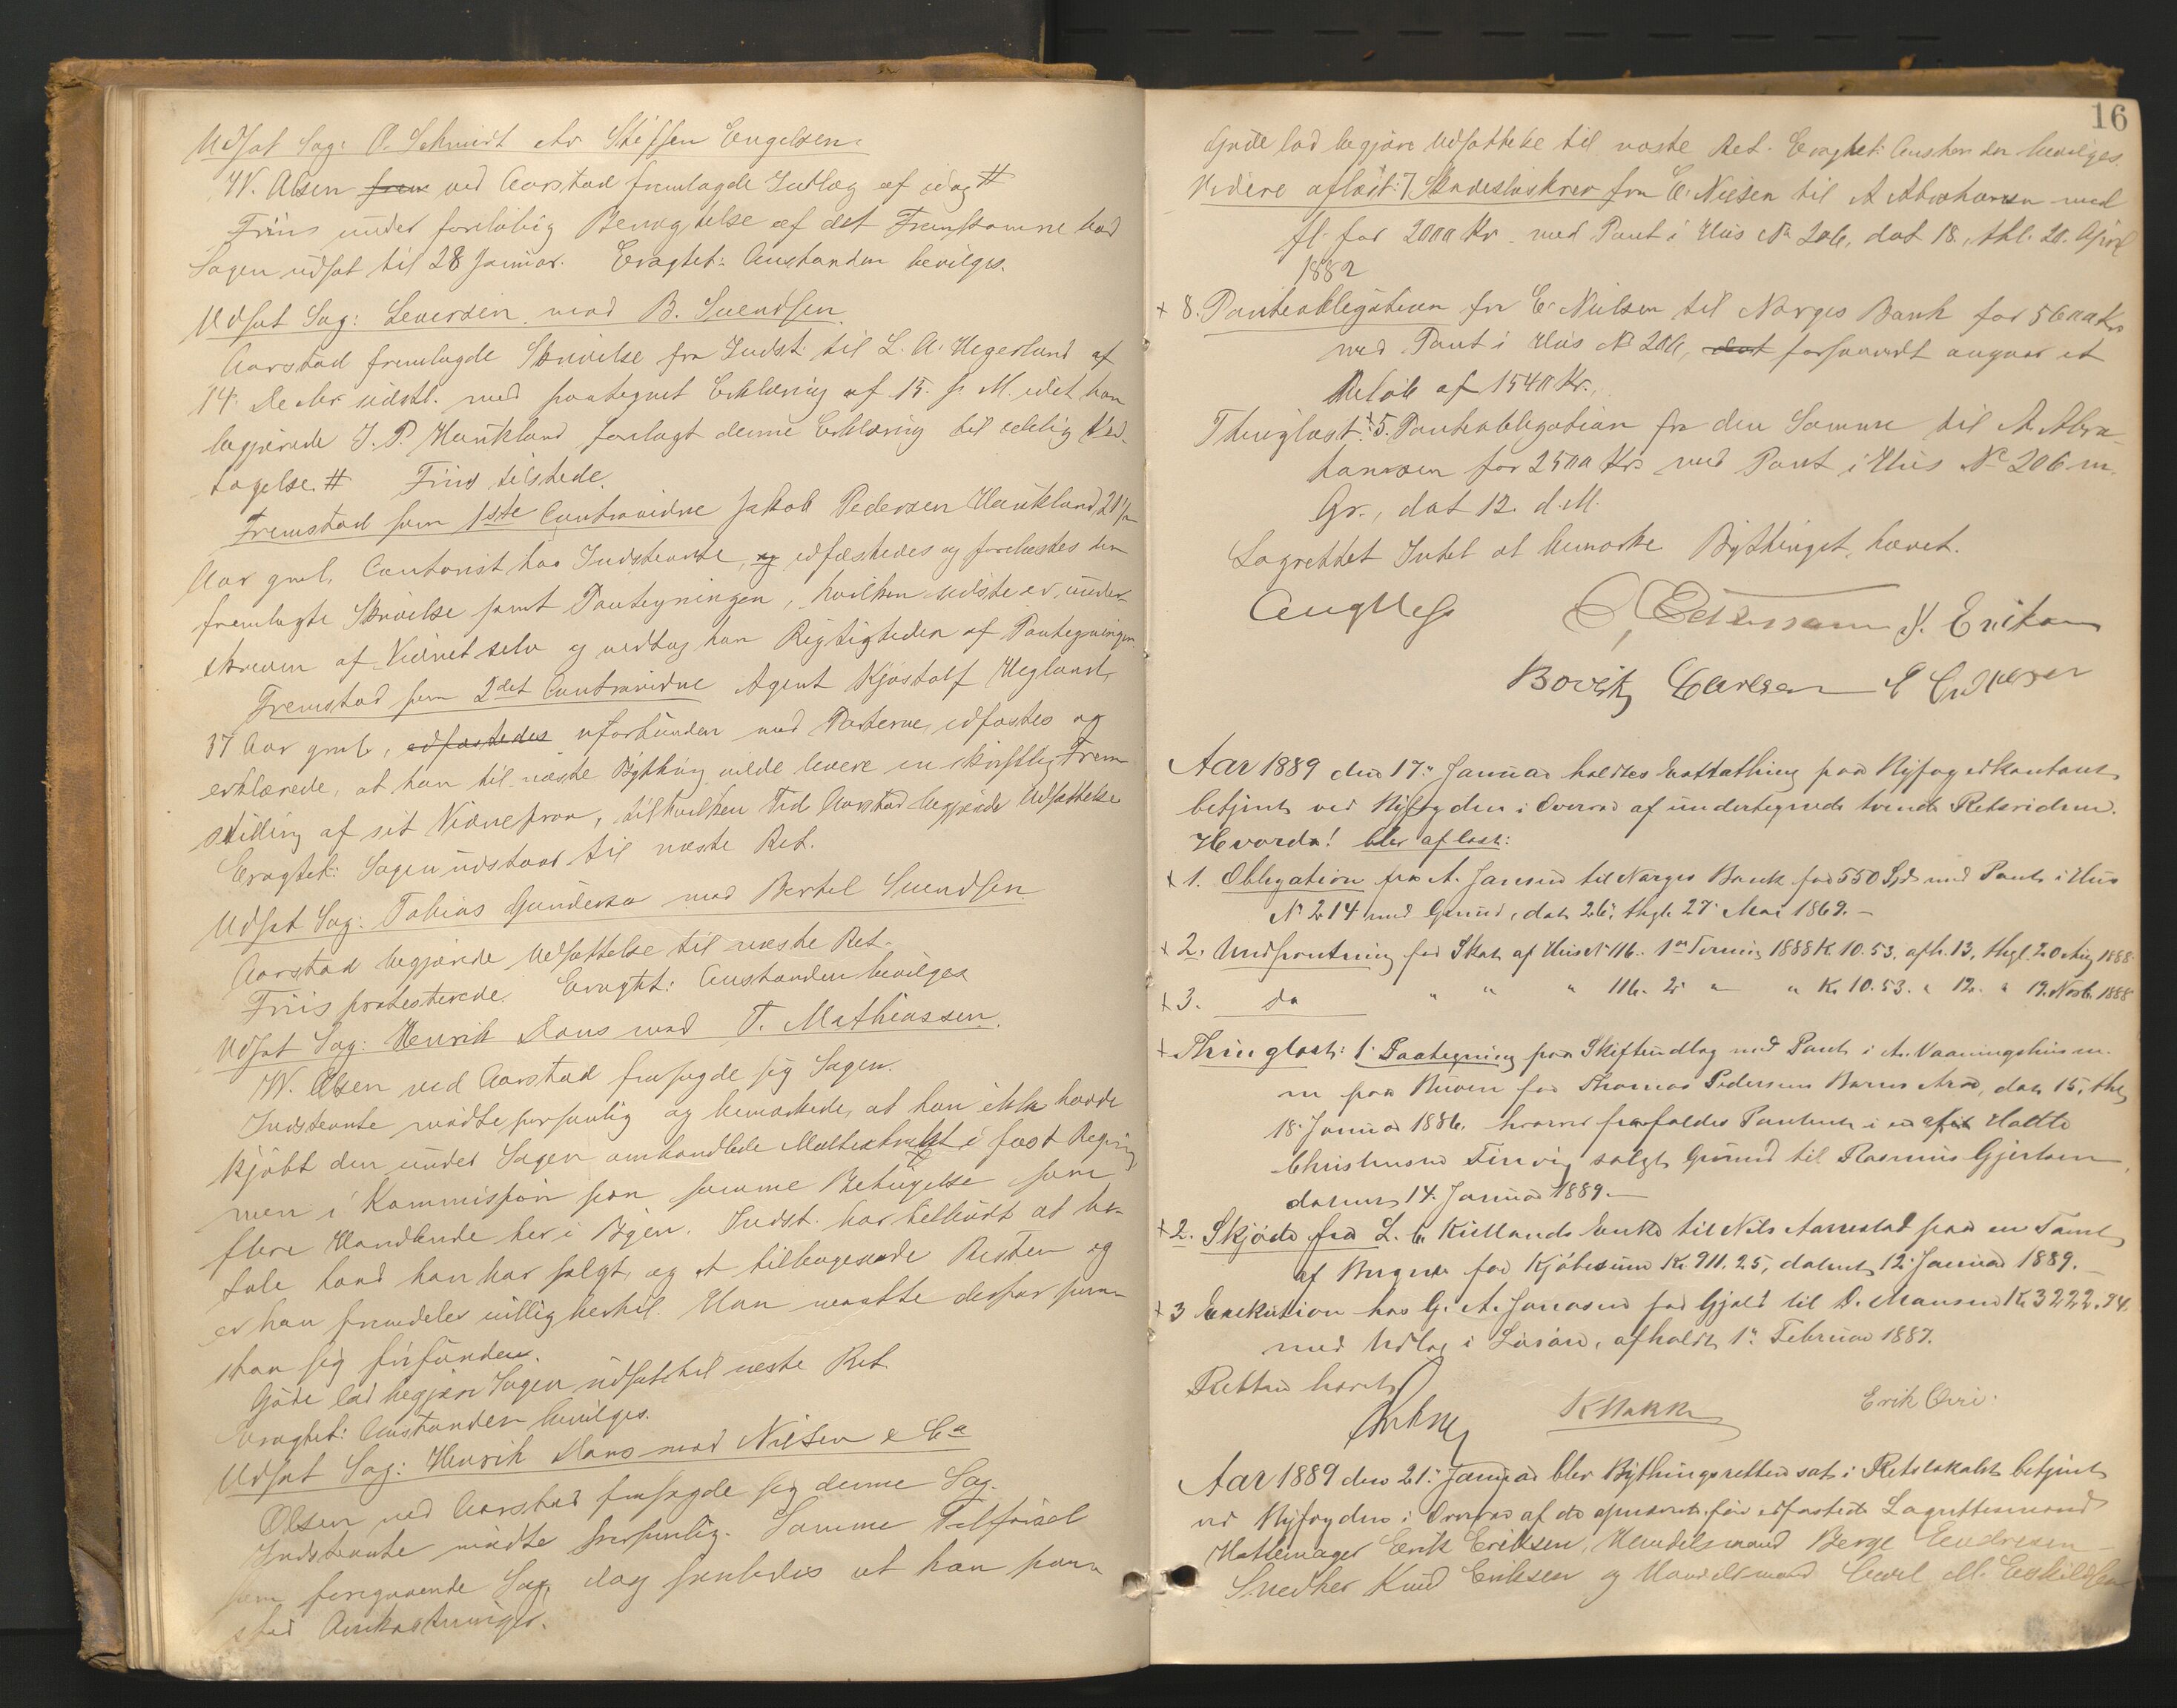 Udsat Sag: O. Schmidt ctr Steffen Engelsen.
W. Olsen frem ved Aarstad fremlagde Indlæg af idag #
Friis under foreløbig Benægtelse af det Fremkomne bad
Sagen udsat til 28 Januar. Eragtet: Anstanden bevilges.
Udsat Sag: Leversen mod B. Svendsen.
Aarstad fremlagde Skrivelse fra Indst. til L. A. Hegerland af
14 Decbr sidstl. med paategnet Erklæring af 15. s. M. idet han
begjærede J. P. Haukland forelagt denne Erklæring til edelig Ved-
tagelse. # Friis tilstede.
Fremstod som 1ste Contravidne Jakob Pedersen Haukland, 21 1/2
Aar gml, Contorist hos Indstevnte, og edfæstedes og forelæstes den
fremlagte Skrivelse samt Paategningen, hvilken sidste er under-
skreven af Vidnet selv og vedtog han Rigtigheden af Paategningen.
Fremstod som 2det Contravidne Agent Kjøstolf Hegland,
37 Aar gml, edfæstedes uforbunden med Parterne, edfæstes og
erklærede, at han til næste Bything vilde levere en skriftlig Frem-
stilling af sit Vidneprov, til hvilken Tid Aarstad begjærede Udsættelse
Eragtet: Sagen udstaar til næste Ret.
Udsat Sag: Tobias Gundersen mod Bertel Svendsen
Aarstad begjærede Udsættelse til næste Ret.
Friis protesterede. Eragtet: Anstanden bevilges
Udsat Sag: Henrik Dons mod T. Mathiassen.
W. Olsen ved Aarstad frasagde sig Sagen.
Indstevnte mødte personlig og bemærkede, at han ikke havde
kjøbt den under Sagen omhandlede Maltextrakt i fast Regning
men i Kommission paa samme Betingelse som
flere Handlende her i Byen. Indst. har tilbudt at be-
tale hvad han har solgt, og at tilbagesende Resten og
er han fremdeles villig hertil. Han maatte derfor paa-
staa sig frifunden.
Gøde lod begjære Sagen udsat til næste Ret
Eragtet: Anstanden bevilges.
Udsat Sag: Henrik Dons mod Nielsen & Co
Olsen ved Aarstad frasagde sig denne Sag.
Indstevnte mødte personlig. Samme Tilførsel
som foregaaende Sag, dog saaledes at han paa-
stod Omkostninger.
16
Gøde lod begjære Udsættelse til næste Ret. Eragtet: Anstanden bevilges.
Videre aflæst: 7 Skadesløsbrev fra E. Nielsen til A Abrahamsen med
fl. for 2000 Kr. med Pant i Hus No 206, dat 18, thl. 20. April
1882
+ 8. Panteobligation fra E. Nielsen til Norges Bank for 5600 Kr
med Pant i Hus No 206, dat forsaavidt angaar et
Beløb af 1540 Kr.,
Thinglæst: 5. Panteobligation fra den Samme til A. Abra-
hamsen for 2500 Kr med Pant i Hus No 206 m.
Gr., dat 12. d. M.
Lagrettet Intet at bemærke Bythinget hævet.
J. Eriksen
Carlsen
Aar 1889 den 17de Januar holdtes Extrathing paa Byfogedkontoret
betjent ved Byfogden i Overvær af undertegnede tvende Retsvidner.
Hvorda! blev aflæst:
+ 1. Obligation fra A. Jansen til Norges Bank for 550 Spd med Pant i Hus
No 214 med Grund, dat 26, thgl. 27 Mai 1869. –
+ 2. Udpantning for Skat af Hus No 116. 1ste Termin 1888 K. 10.53. afh. 13, thgl. 20 Aug 1888.
+ 3. do " " " 116. 2. " " K. 10.53. " 12. " 19. Novb. 1888
+ Thinglæst: 1. Paategning paa Skifteudlæg med Pant i A. Vaaningshus m.
m paa for Thomas Pedersens Barns Arv, dat 15, thl
18 Januar 1886. hvorved frafaldes Panteret i en af
Christensen solgt Grund til Rasmus Gjertsen,
dateret 14. Januar 1889. –
+ 2. Skjøde fra L. C. Kiellands Enke til Nils Aarrestad paa en Tomt
af for Kjøbesum Kr. 911.25, dateret 12 Januar 1889. –
+ 3 Exekution hos G. A. Jonasen for Gjæld til D. Mansen Kr. 3222.94.
med Udlæg i Løsøre, afholdt 1. Februar 1887.
Retten hævet
K Bakke Erik Orre.
Aar 1889 den 21. Januar blev Bythingsretten sat i Retslokalet betjent
ved Byfogden i Overvær af de opnævnte før edfæstede Lagrettesmænd
Hattemager Erik Eriksen, Handelsmand Berge Endresen
Snedker Knud Eriksen og Handelsmand Carl M. Eskildsen